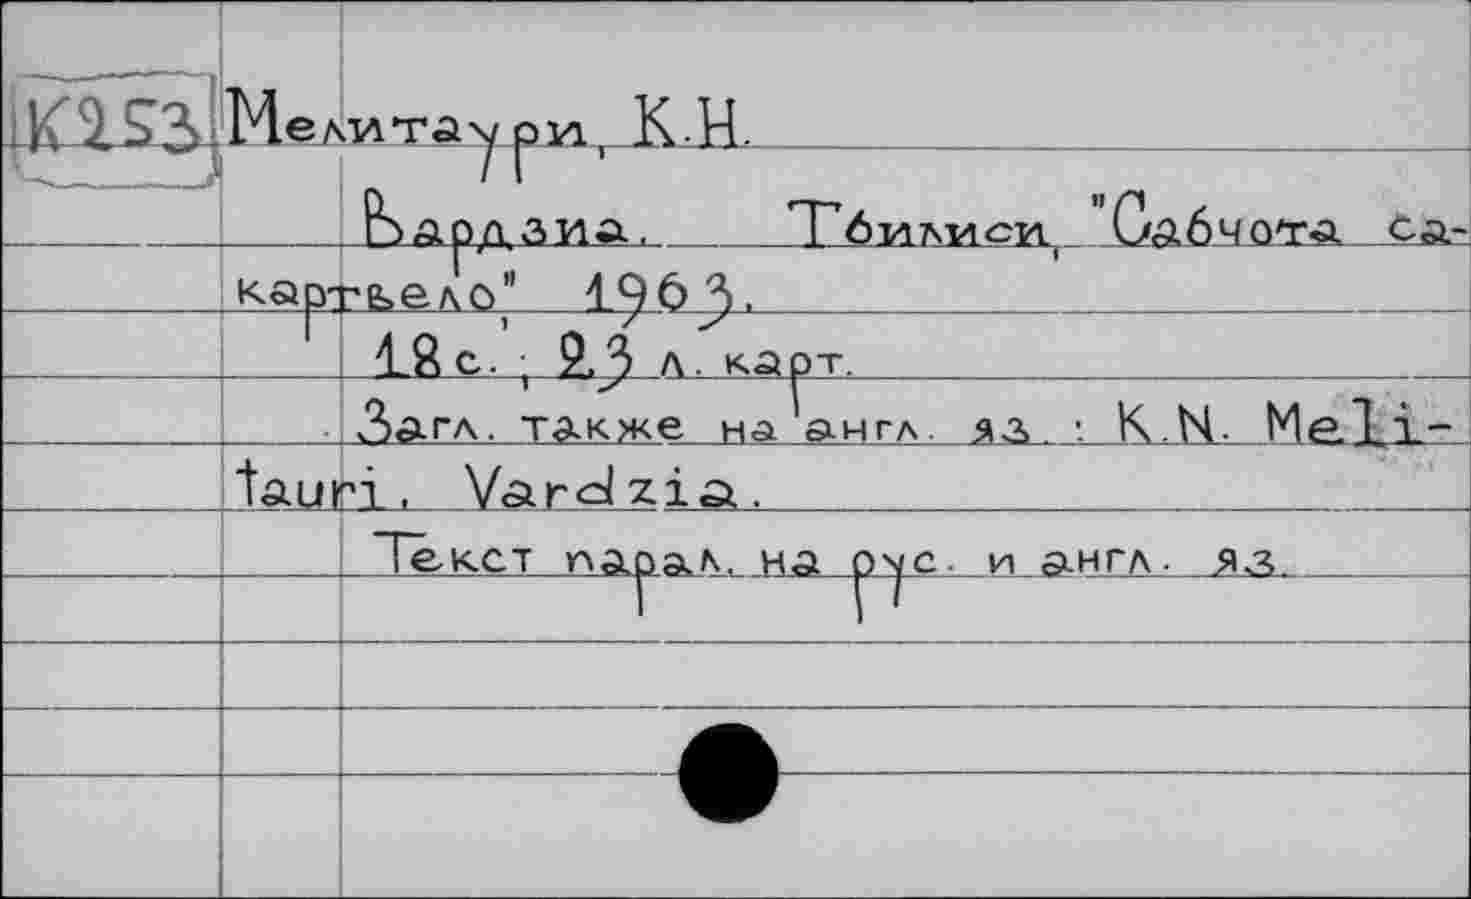 К253 Мелитаури, К.Н.
Вардзиа. Тбилиси, "Сабчота са-
картвело", 1963.
18 с.; 23 л. карт.
Загл. также на англ. яз. : K.N. Meli-
tauri. Vardzia.
Текст парал. на рус. и англ. яз.